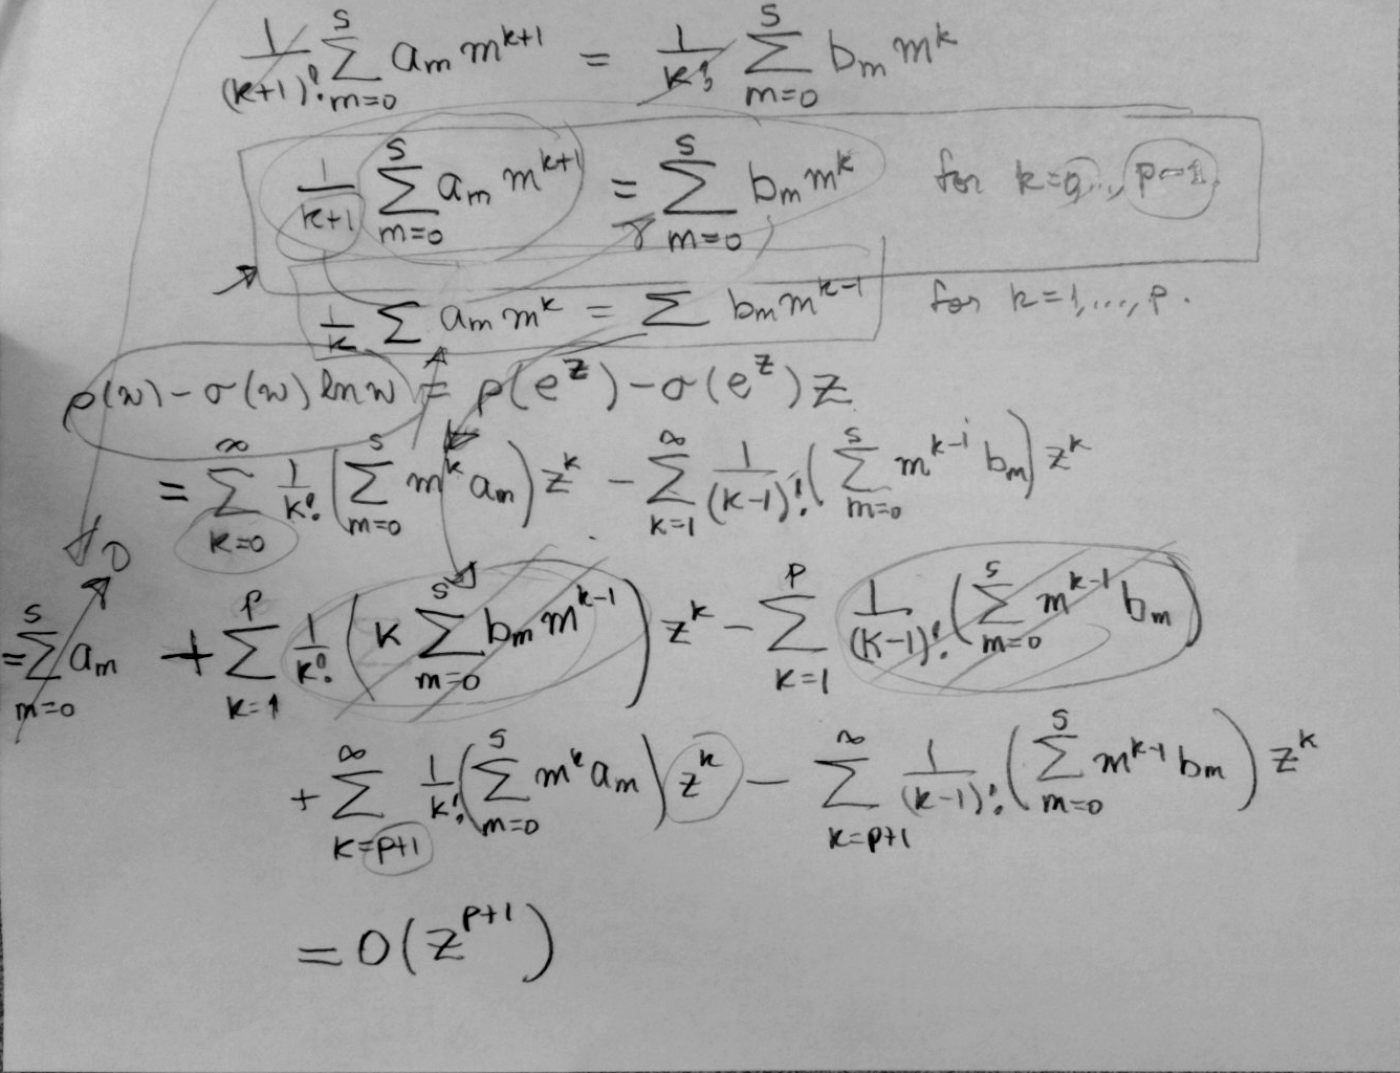 1/(k+1)! ∑_{m=0}^{s} a_m m^{k+1} = 1/k! ∑_{m=0}^{s} b_m m^k
1/(k+1) ∑_{m=0}^{s} a_m m^{k+1} = ∑_{m=0}^{s} b_m m^k for k=0,..., p-1.
1/k ∑ a_m m^k = ∑ b_m m^{k-1} for k=1,...,p.
ρ(w) - σ(w) ln w = ρ(e^z) - σ(e^z) z
= ∑_{k=0}^{∞} 1/k! (∑_{m=0}^{s} m^k a_m) z^k - ∑_{k=1}^{∞} 1/(k-1)! (∑_{m=0}^{s} m^{k-1} b_m) z^k
0
= ∑_{m=0}^{s} a_m + ∑_{k=1}^{p} 1/k! (k ∑_{m=0}^{s} b_m m^{k-1}) z^k - ∑_{k=1}^{p} 1/(k-1)! (∑_{m=0}^{s} m^{k-1} b_m)
+ ∑_{k=p+1}^{∞} 1/k! (∑_{m=0}^{s} m^k a_m) z^k - ∑_{k=p+1}^{∞} 1/(k-1)! (∑_{m=0}^{s} m^{k-1} b_m) z^k
= O(z^{p+1})